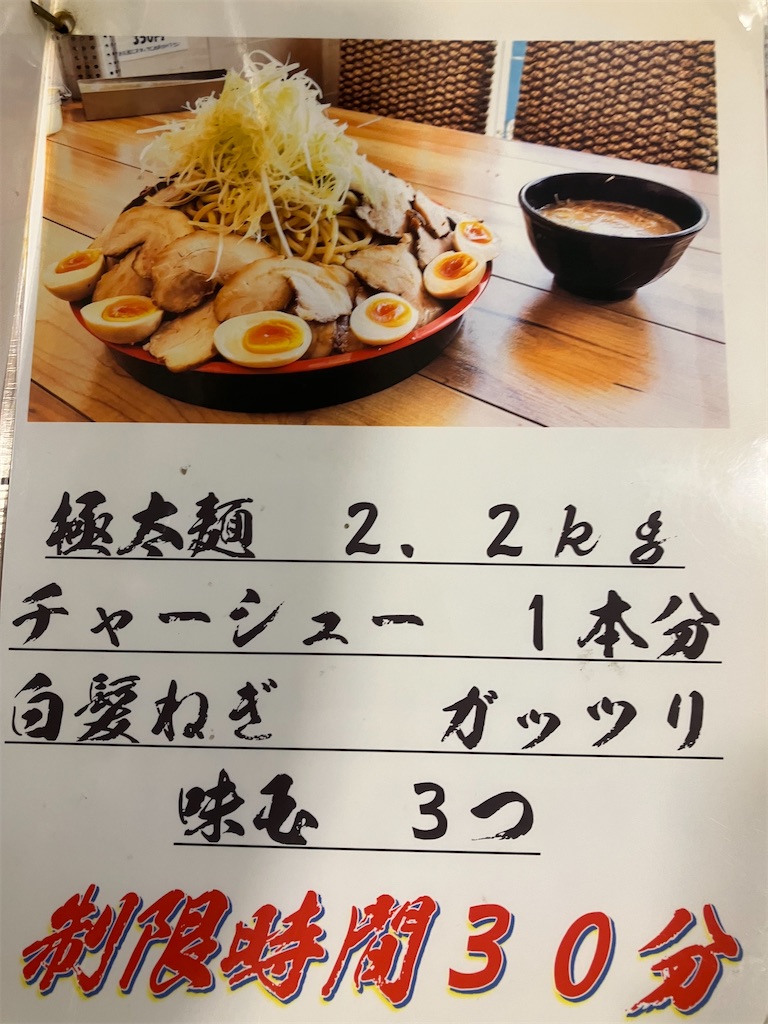 極太麺　２．２ｋｇ
チャーシュー　１本分
白髪ねぎ　ガッツリ
味玉　３つ
制限時間３０分